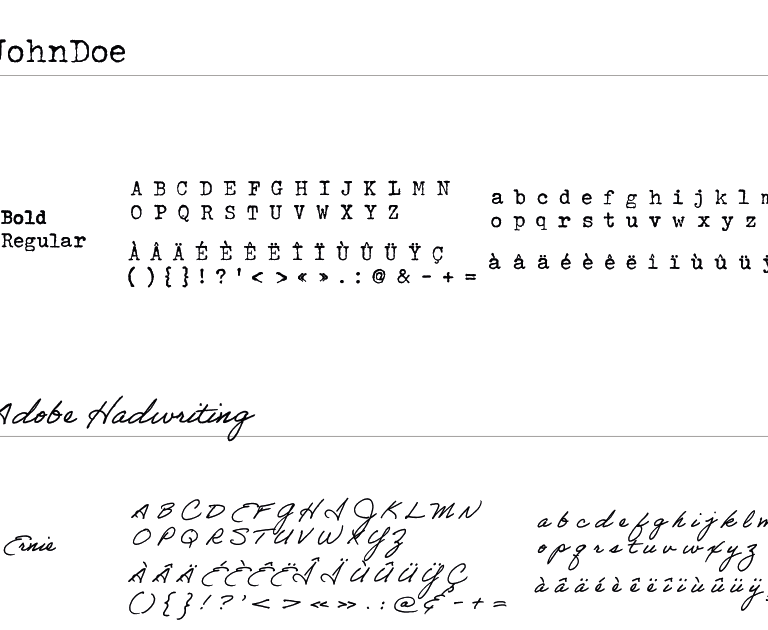 JohnDoe
Bold
Regular
A B C D E F G H I J K L M N
O P Q R S T U V W X Y Z
À Â Ä É È Ê Ë Î Ï Ù Û Ü Ÿ Ç
( ) { } ! ? ' < > « » . : @ & - + =
a b c d e f g h i j k l m
o p q r s t u v w x y z
à â ä é è ê ë î ï ù û ü ÿ
Adobe Hadwriting
Ernie
A B C D E F G H I J K L M N
O P Q R S T U V W X Y Z
À Â Ä É È Ê Ë Î Ï Ù Û Ü Ÿ Ç
( ) { } ! ? ' < > « » . : @ & - + =
a b c d e f g h i j k l m
o p q r s t u v w x y z
à â ä é è ê ë î ï ù û ü ÿ